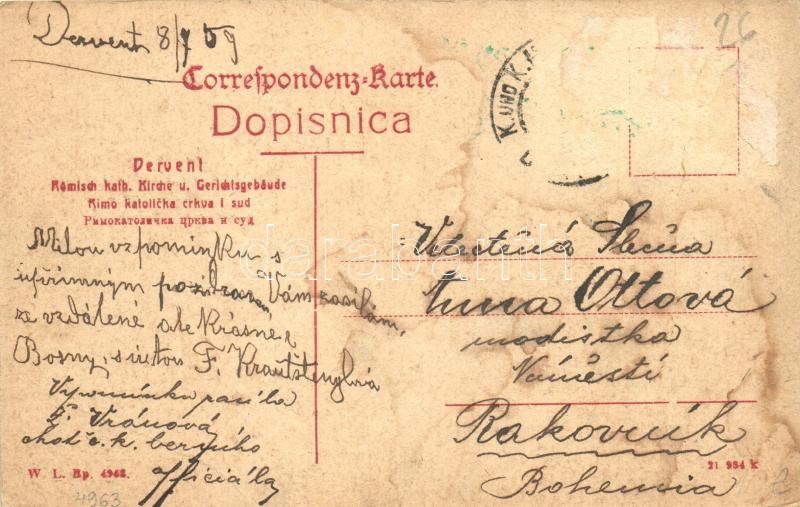 Dervent 8/7 09
26
Correspondenz-Karte.
Dopisnica
K. UND K. M
Dervent
Römisch kath. Kirche u. Gerichtsgebäude
Rimo katolička crkva i sud
Римокатоличка црква и суд
Milou vzpomínku s
upřímným pozdravem Vám zasílám,
ze vzdálené ale krásné
Bosny, s úctou F.
Vzpomínku zasílá
F. Vránová
choť c. k. berního
officiála
W. L. Bp. 4963.
4963
Velectěná Slečna
Anna Ottová
modistka
Náměstí
Rakovník
Bohemia
21 984 K
darabanth